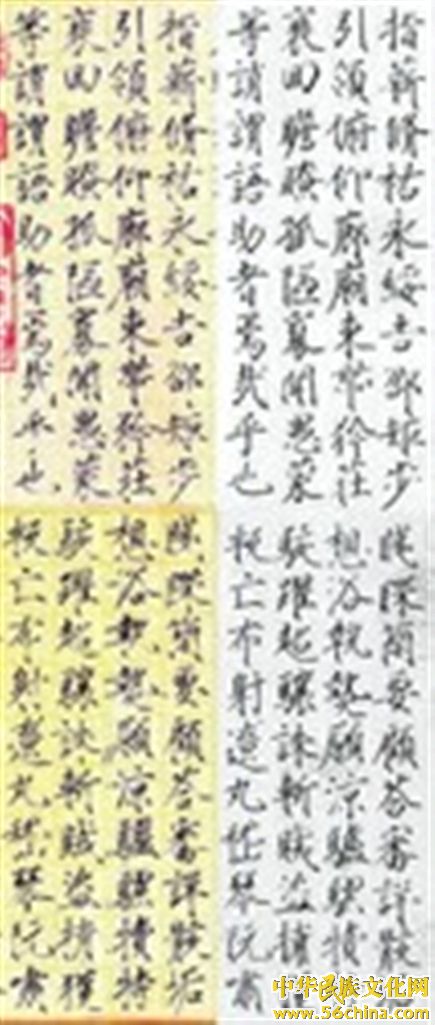 指薪脩祜永綏吉劭矩步
引領俯仰廊廟束帶矜莊
裵回瞻眺孤陋寡聞愚蒙
等誚謂語助者焉哉乎也
指薪脩祜永綏吉劭矩步
引領俯仰廊廟束帶矜莊
裵回瞻眺孤陋寡聞愚蒙
等誚謂語助者焉哉乎也
牋牒簡要顧答審詳骸
想浴執熱願涼驢騾犢
駭躍超驤誅斬賊盜捕
叛亡布射遼丸嵇琴阮嘯
牋牒簡要顧答審詳骸垢
想浴執熱願涼驢騾犢特
駭躍超驤誅斬賊盜捕獲
叛亡布射遼丸嵇琴阮嘯
中华民族文化网
www.56china.com